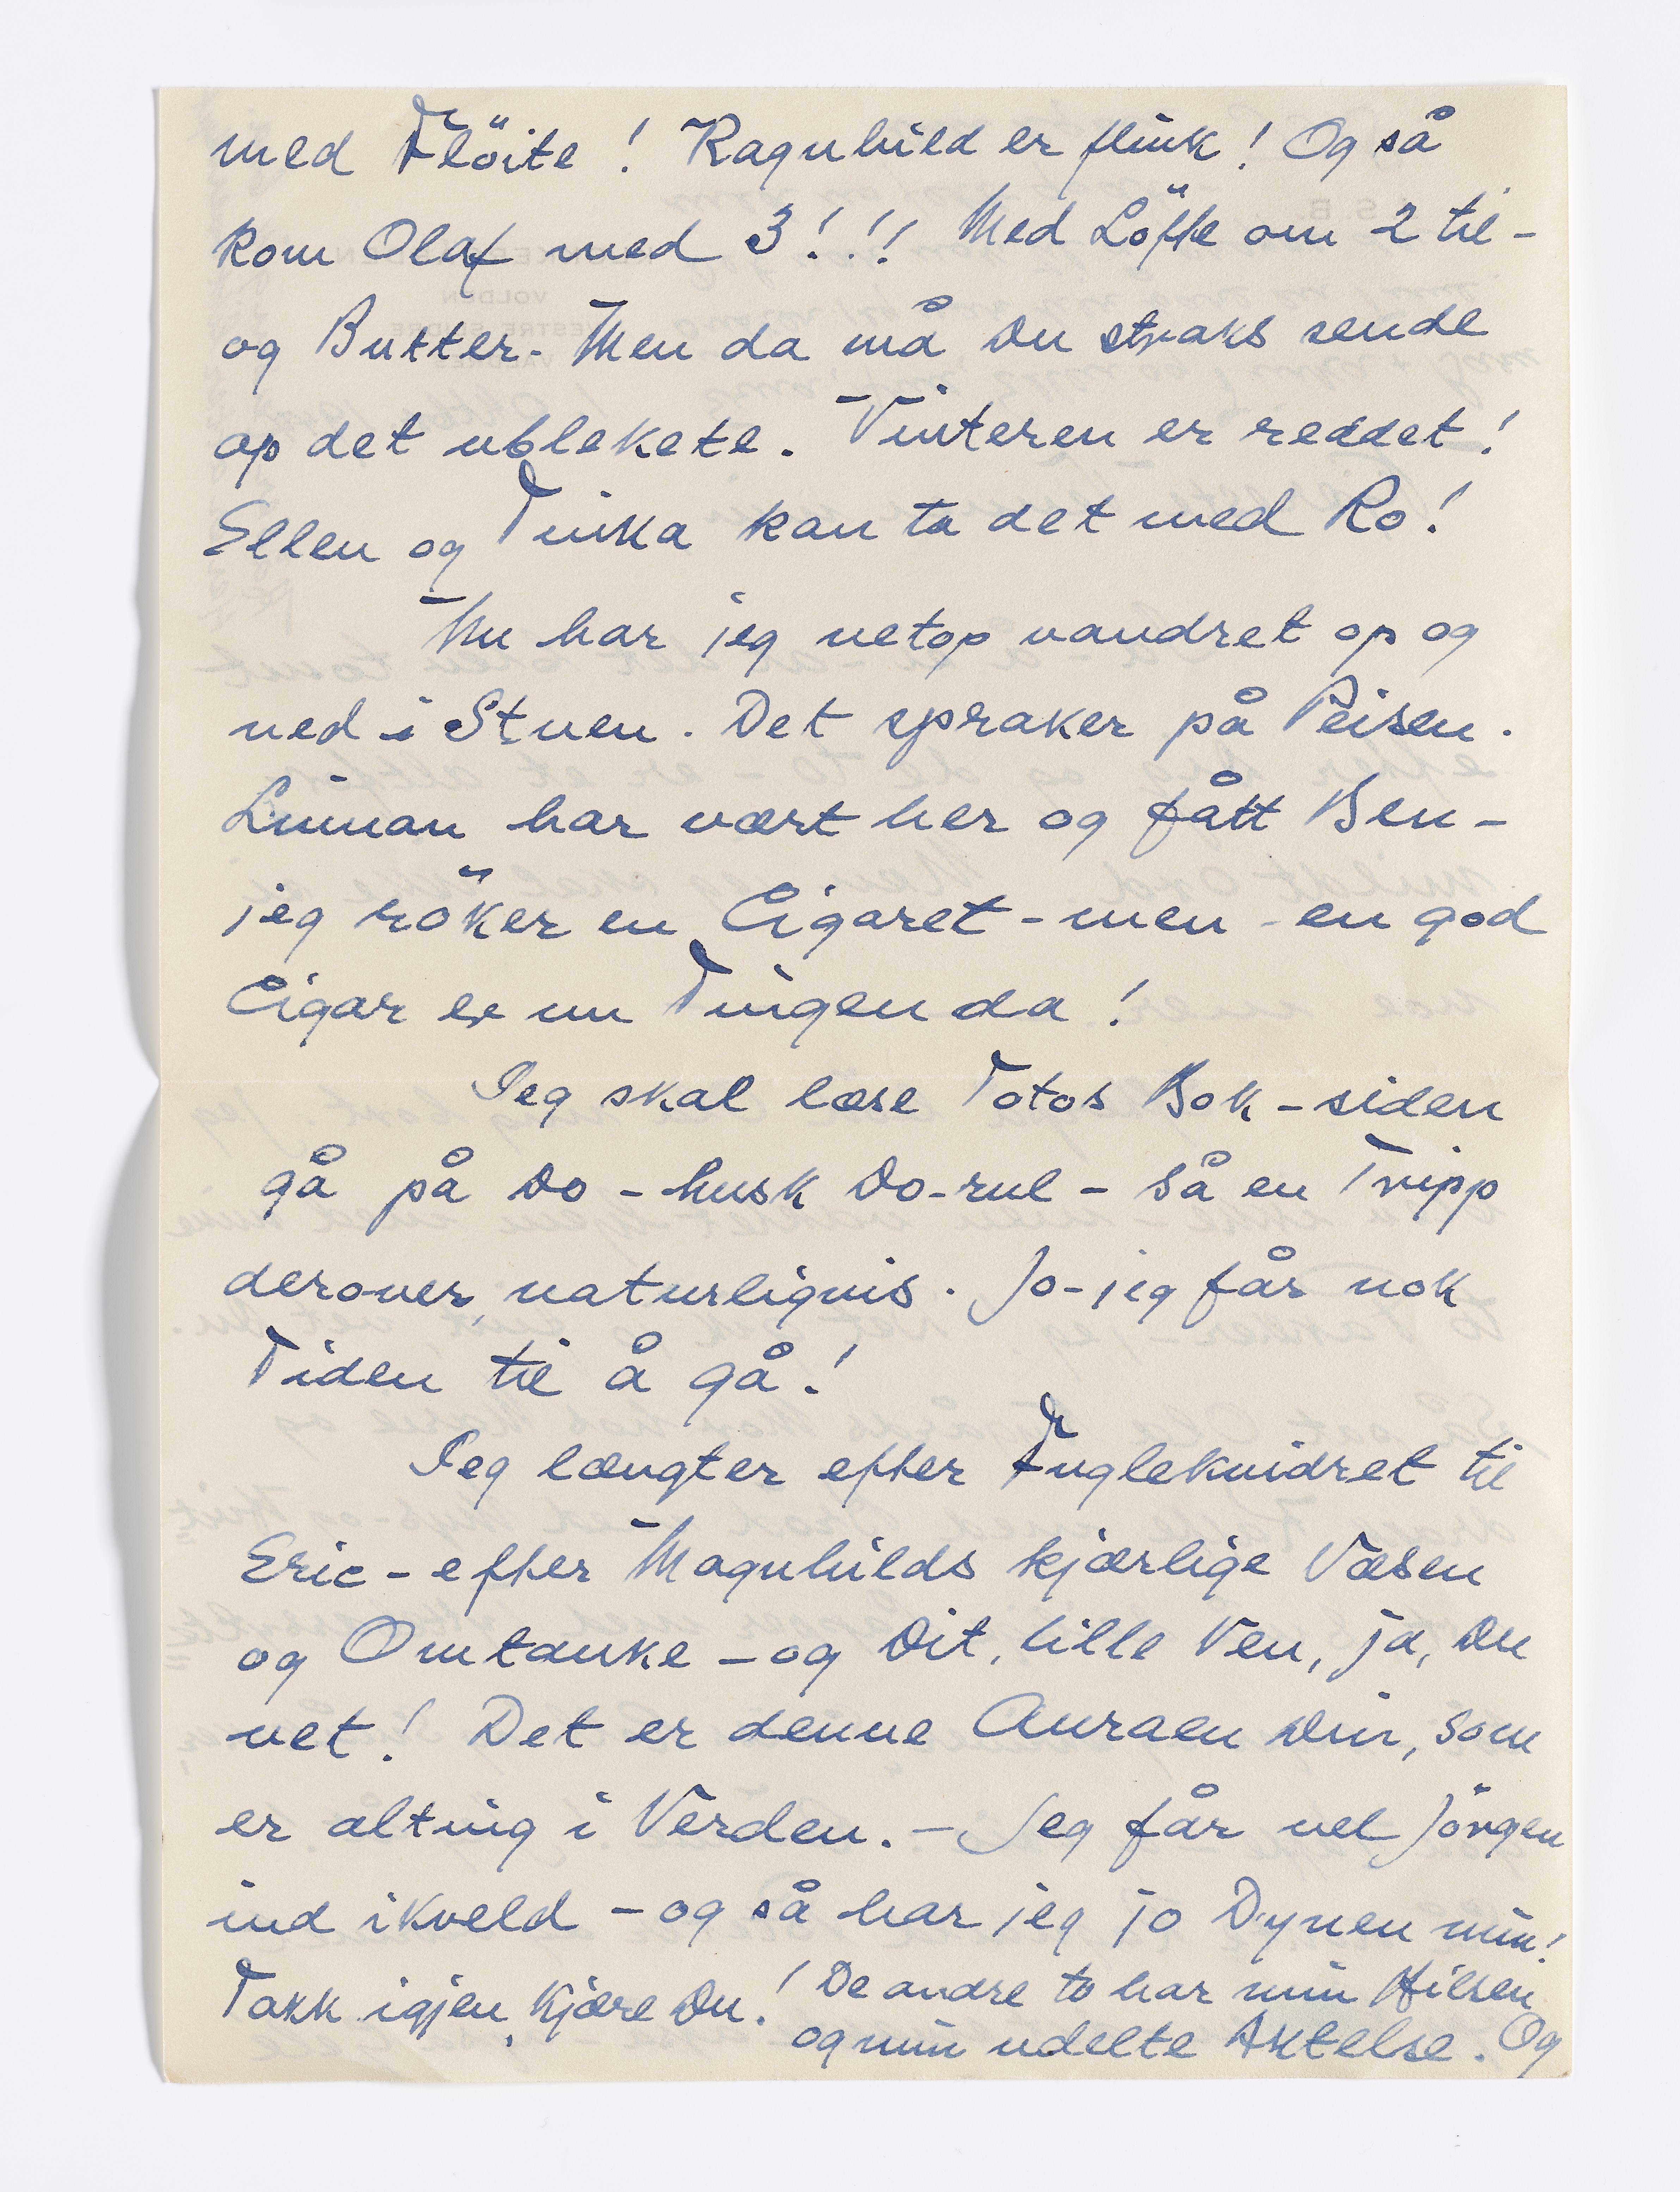 med Flöite! Ragnhild er flink! Og så
kom Olaf med 3!!! Med Löfte om 2 til -
og Butter. Men da må Du straks sende
op det ublekete. Vinteren er reddet!
Ellen og Tinka kan ta det med Ro!
Nu har jeg netop vandret op og
ned i Stuen. Det spraker på Peisen.
Linnan har vært her og fått Ben -
jeg röker en Cigaret - men - en god
Cigar er nu Tingen da!
Jeg skal læse Totos Bok - siden
gå på Do - husk Do-rul - så en Tripp
derover, naturligvis. Jo - jeg får nok
Tiden til å gå!
Jeg længter efter Fuglekvidret til
Eric - efter Magnhilds kjærlige Væsen
og Omtanke - og Dit, lille Ven, ja, Du
vet! Det er denne Auraen Din, som
er alting i Verden. - Jeg får vel Jörgen
ind ikveld - og så har jeg jo Dynen min!
Takk igjen, Kjære Du! De andre to har min Hilsen
og min udelte Aktelse. Og